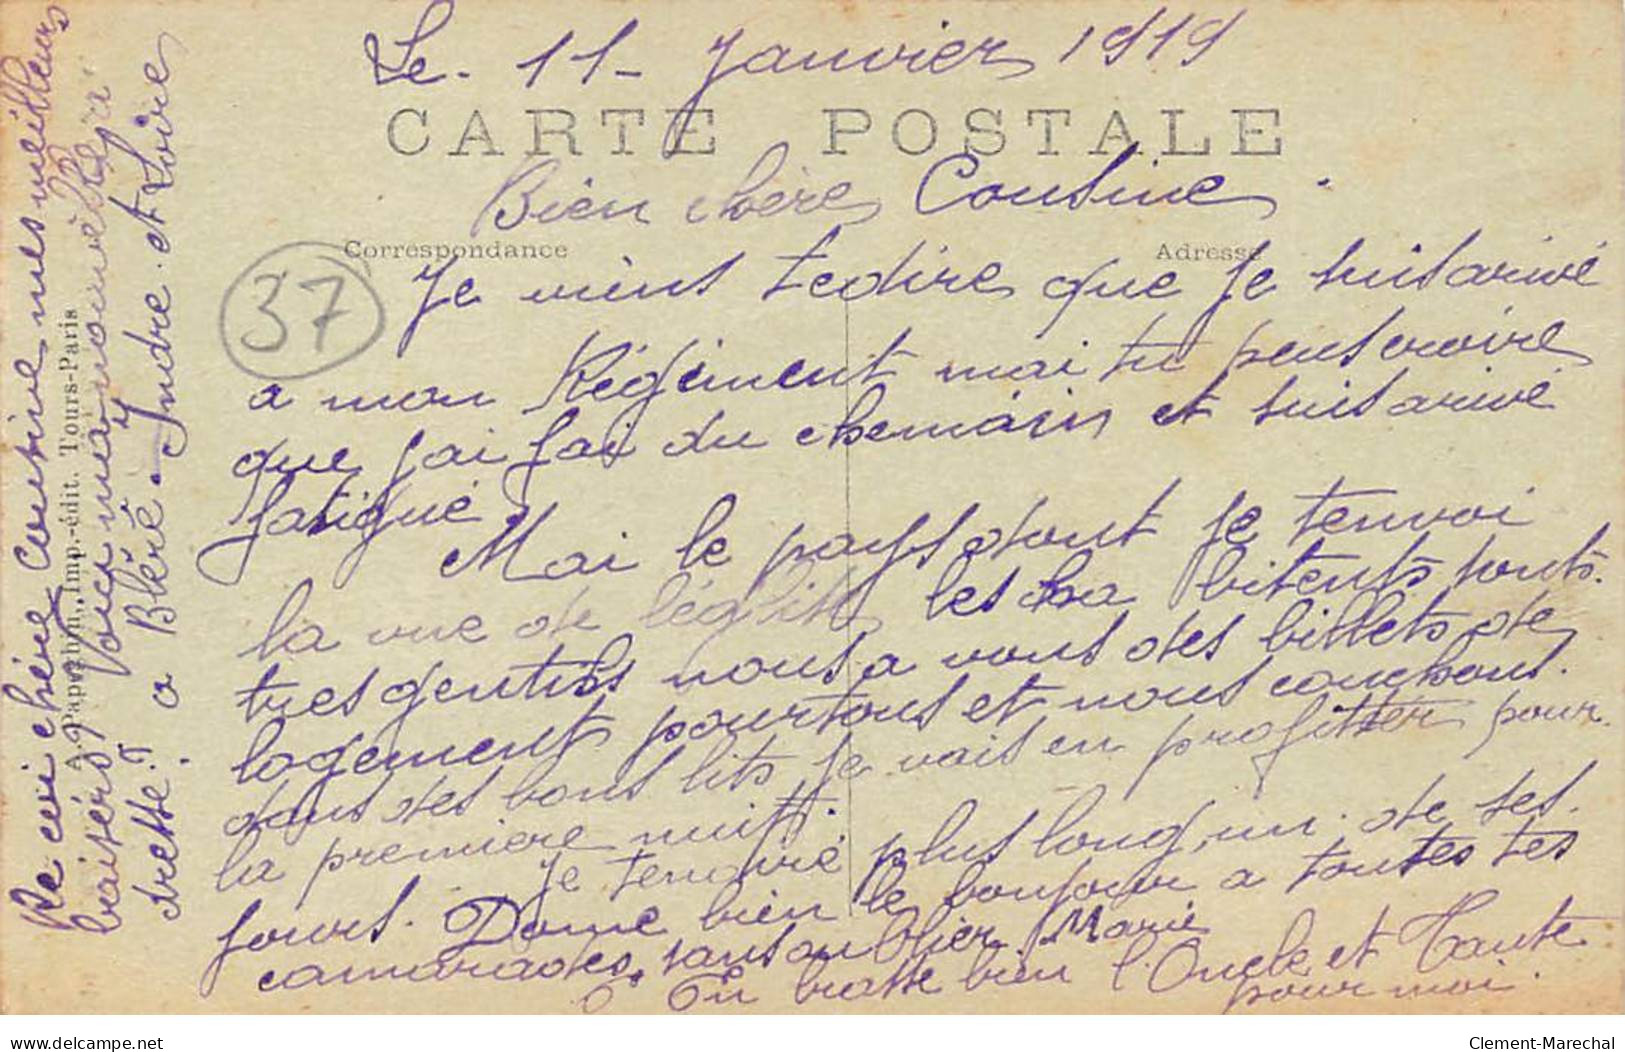 Le. 11- Janvier 1919
CARTE POSTALE
Bien chère Cousine.
Correspondance
Adresse
37
Je viens tedire que Je suisarivé
a mon Régiment mai tu peuscroire
que jai fai du chemain et suisarivé
fatigué
Mai le pays dont Je tenvoi
la vue de léglise les ha bitents sonts.
tres gentils nous a vons des billets de
logement pourtous et nous couchons.
dans des bons lits je vais en profitter pour
la premiere nuitt.
Je tencriré plus long, un. de ses.
jours. Donne bien le bonjour a toutes tes
camarades, sansoublier Marie
En brasse bien l'Oncle et Tante
pour moi.
Re çoi chère Cousine mes meilleurs
baisérs
Voici má nouvélle
dresse. a Bléré. Indre. et Loire
A. Papeghin, Imp.-édit. Tours-Paris
www.delcampe.net
Clement-Marechal